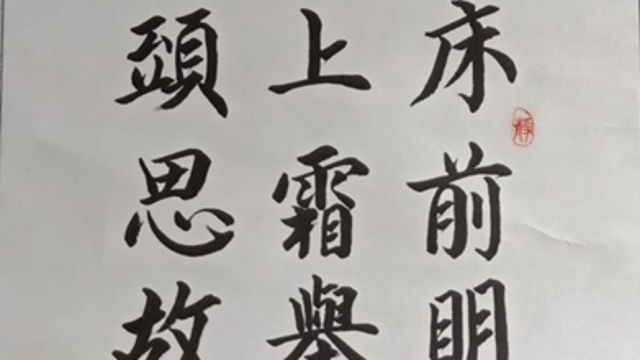 床前明
上霜舉
頭思故